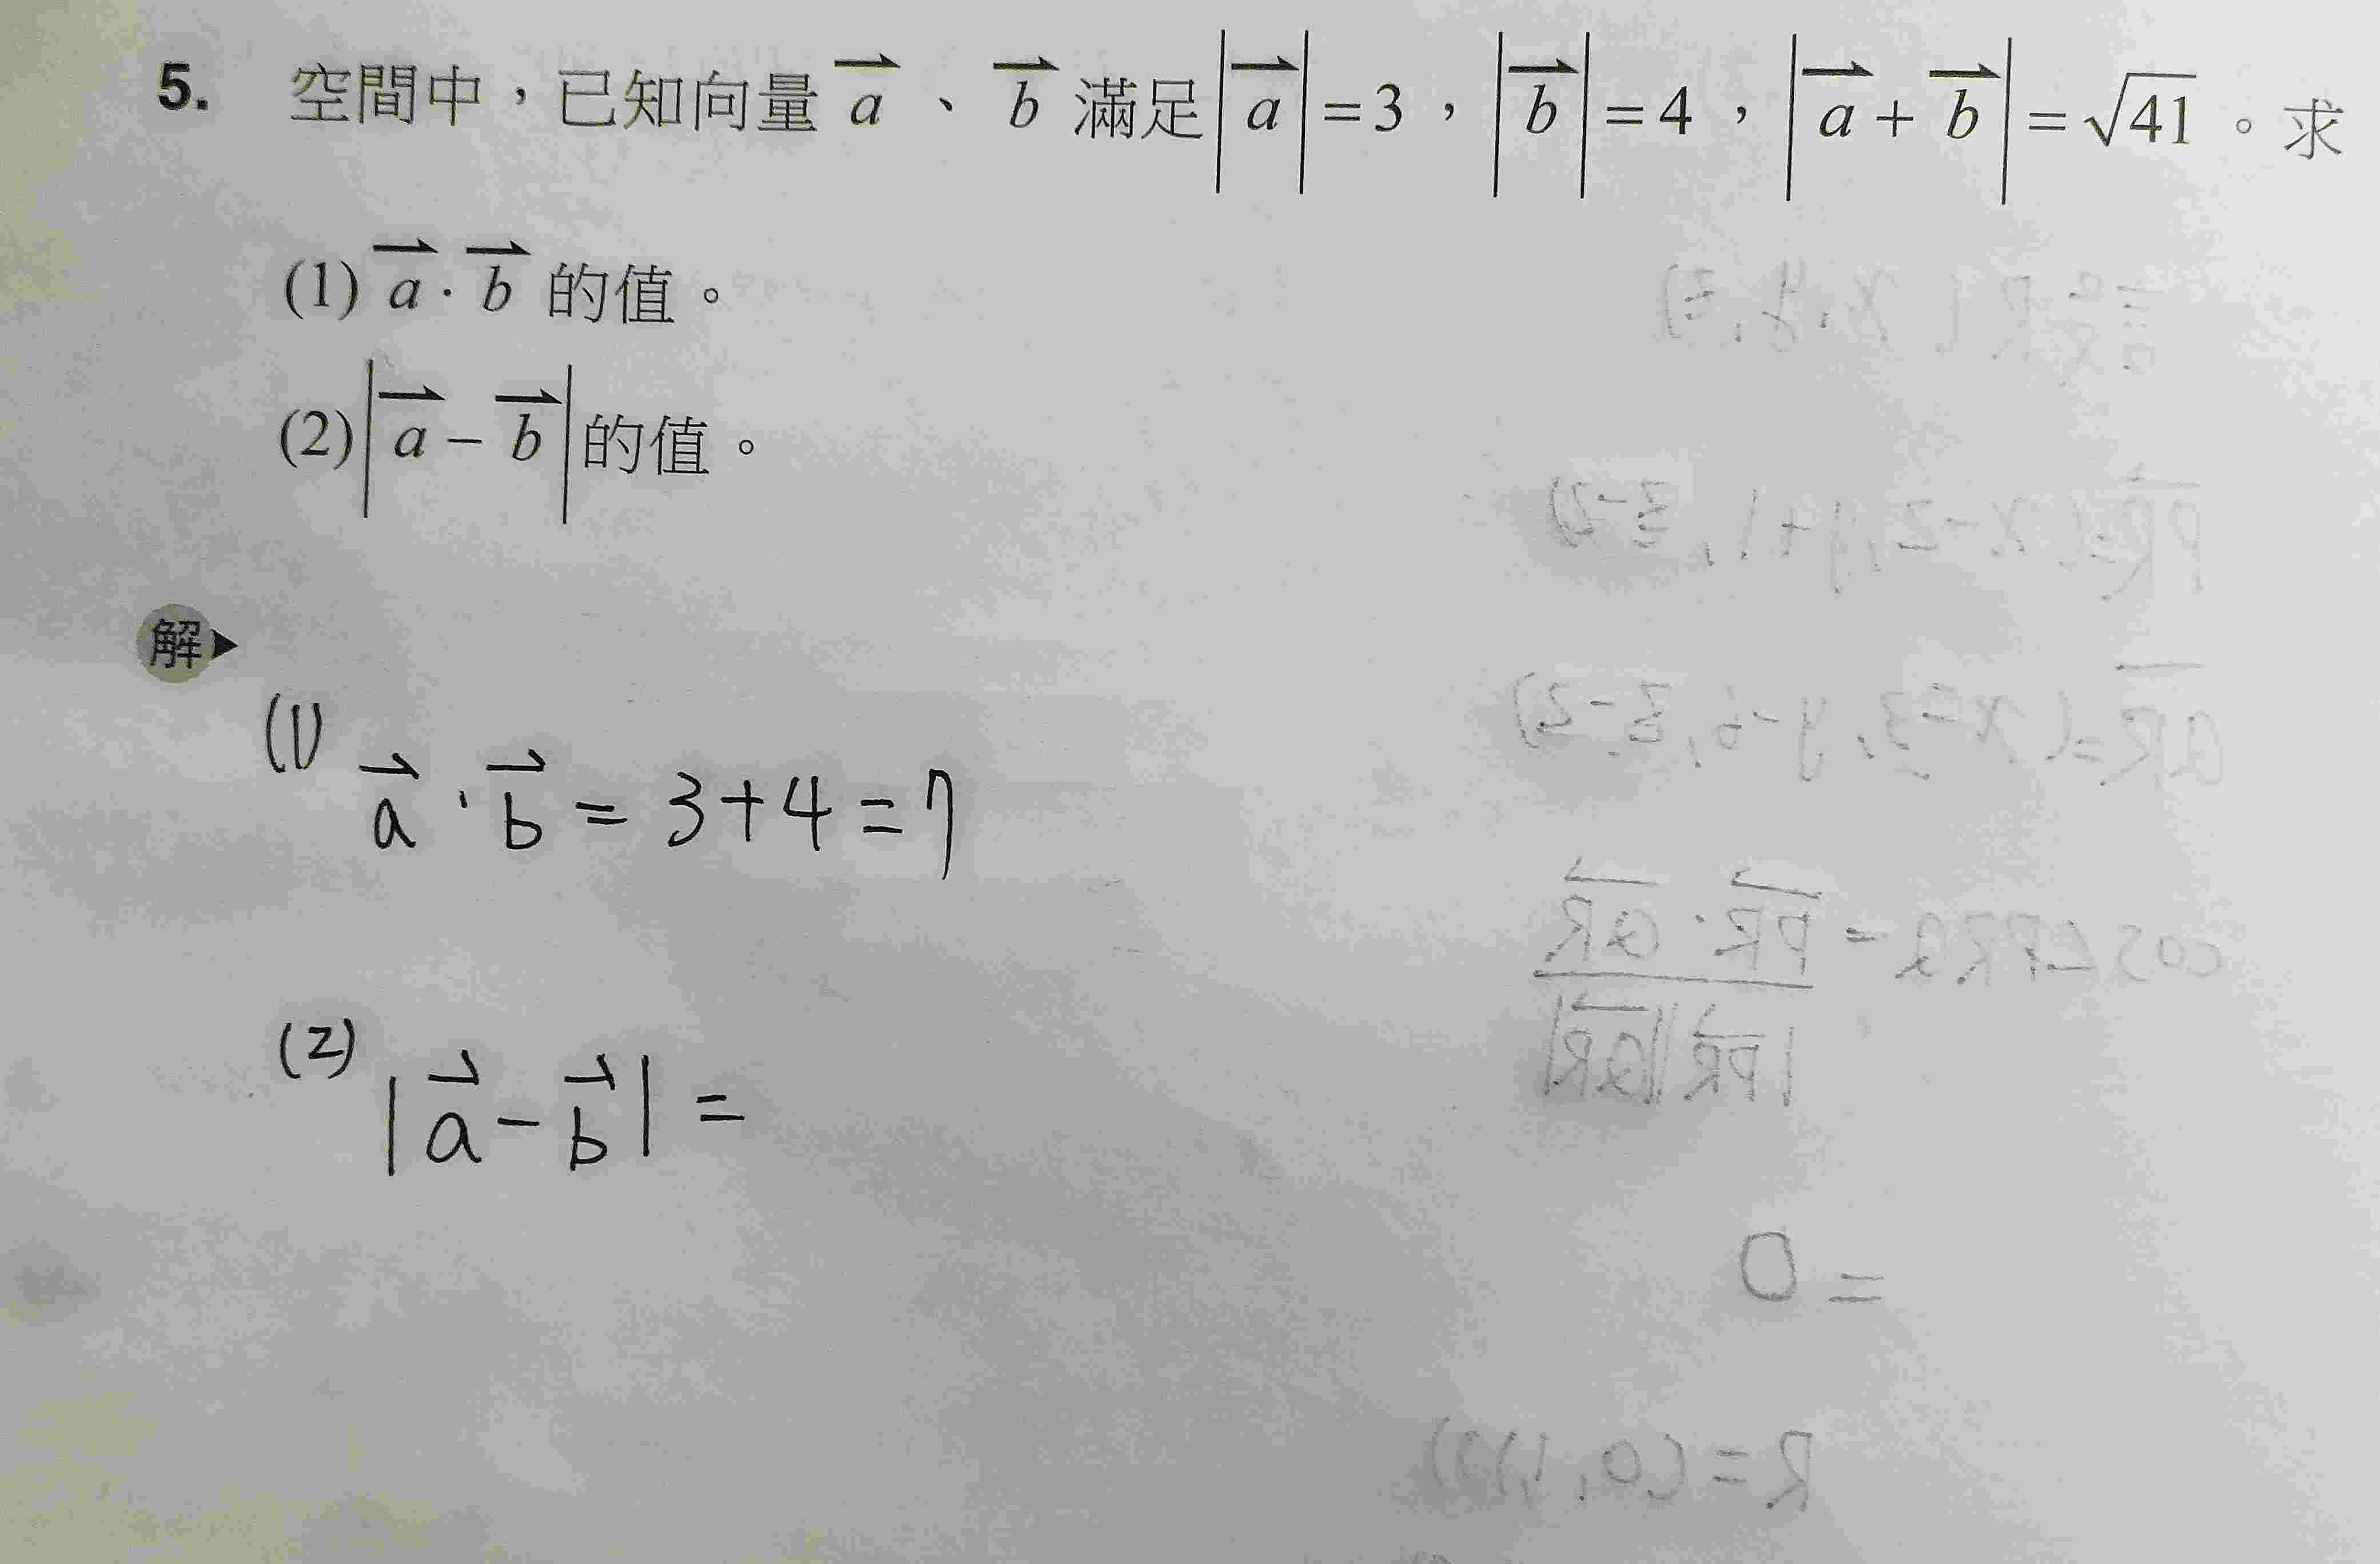 5. 空間中，已知向量 a⃗、b⃗ 滿足|a⃗|=3，|b⃗|=4，|a⃗+b⃗|=√41。求
(1) a⃗·b⃗ 的值。
(2)|a⃗−b⃗|的值。
解▶
(1)
a⃗·b⃗=3+4=7
(2)
|a⃗−b⃗|=